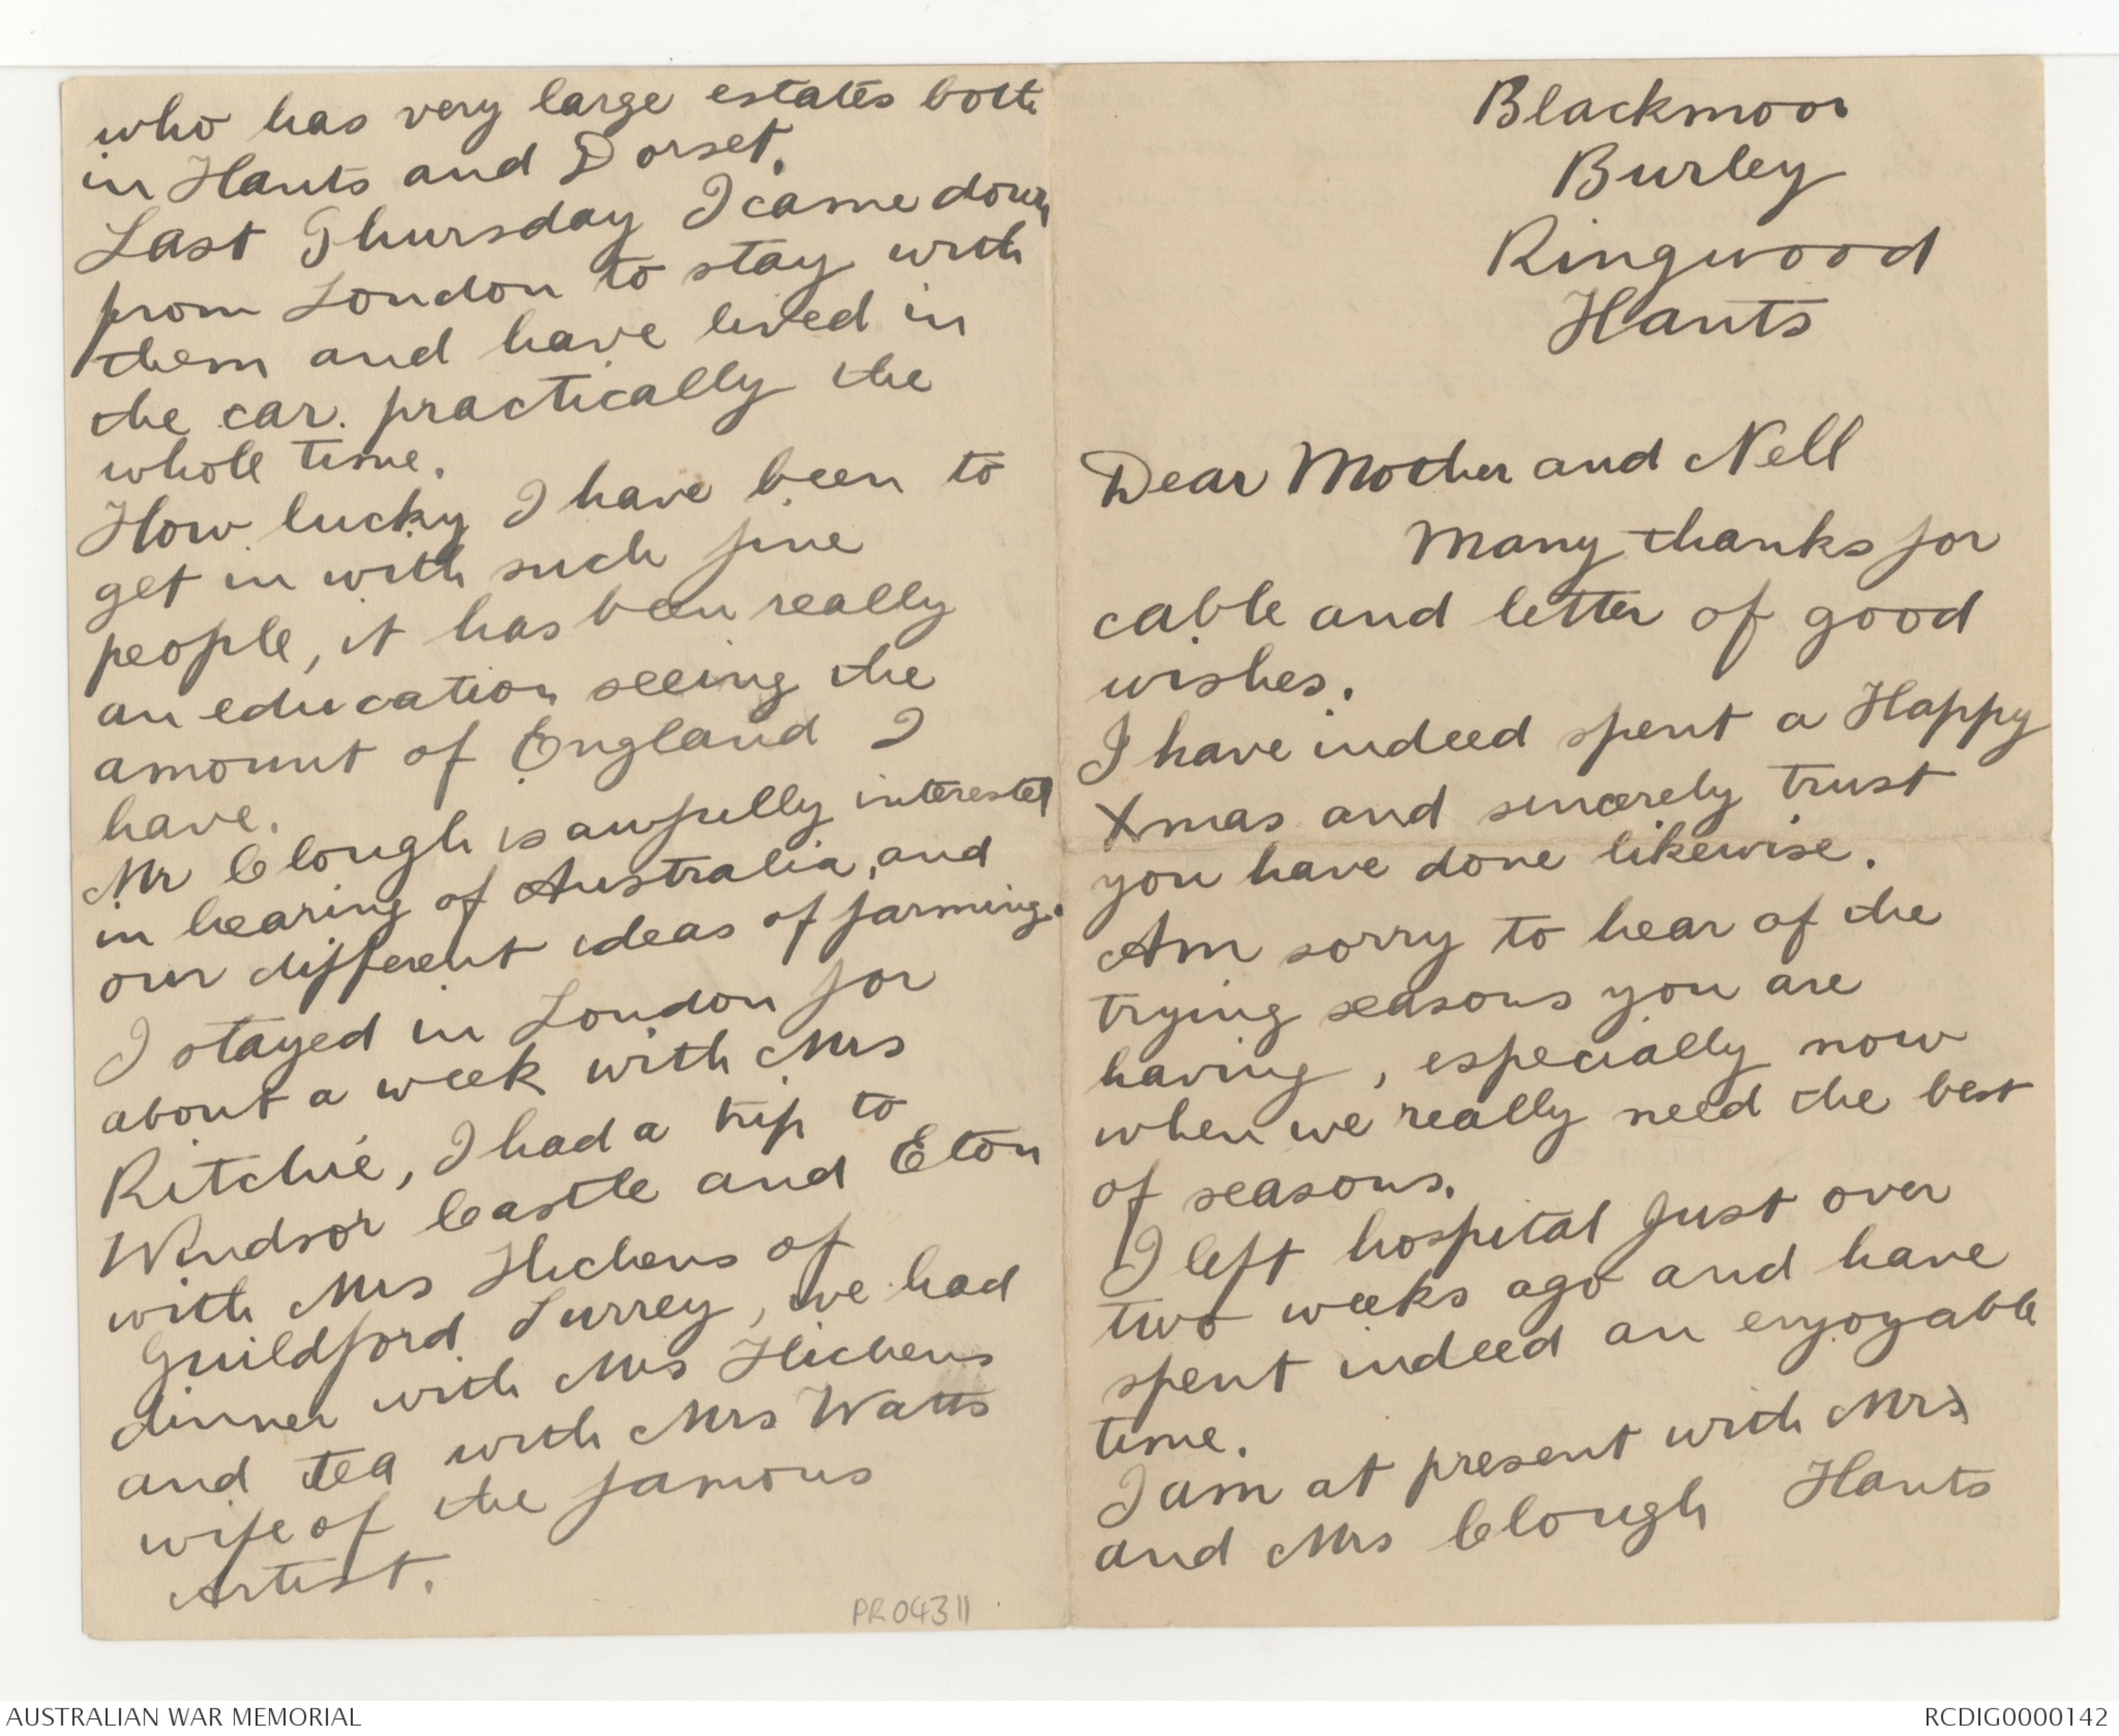 Blackmoor
Burley
Ringwood
Hants
Dear Mother and Nell
Many thanks for
cable and letter of good
wishes.
I have indeed spent a Happy
Xmas and sincerely trust
you have done likewise.
Am sorry to hear of the
trying seasons you are
having, especially now
when we really need the best
of seasons.
I left hospital just over
two weeks ago and have
spent indeed an enjoyable
time.
I am at present with Mrs
and Mrs Clough Hants
who has very large estates both
in Hants and Dorset.
Last Thursday I came down
from London to stay with
them and have lived in
the car. practically the
whole time.
How lucky I have been to
get in with such fine
people, it has been really
an education seeing the
amount of England I
have.
Mr Clough is awfully interested
in hearing of Australia, and
our different ideas of farming.
I stayed in London for
about a week with Mrs
Ritchie, I had a trip to
Windsor Castle and Eton
with Mrs Hichens of
Guildford Surrey, we had
dinner with Mrs Hichens
and tea with Mrs Watts
wife of the famous
Artist.
PR04311
AUSTRALIAN WAR MEMORIAL
RCDIG0000142